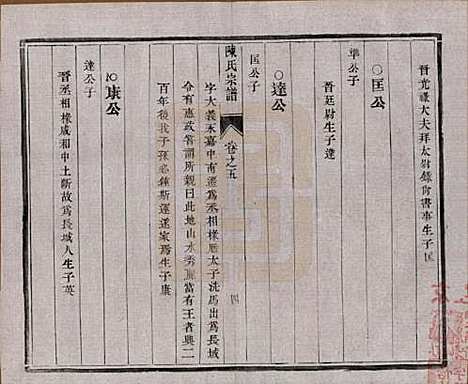 晉光祿大夫拜太尉錄尙書事生子匡
○匡公
準公子
晉廷尉生子達
○達公
匡公子
陳氏宗譜
卷之五
四
字大義永嘉中南遷爲丞相掾歷太子洗馬出爲長城
令有惠政嘗謂所親曰此地山水秀麗當有王者興二
百年後我子孫必鍾斯運遂家焉生子康
○康公
達公子
晉丞相掾咸和中土斷故爲長城人生子英